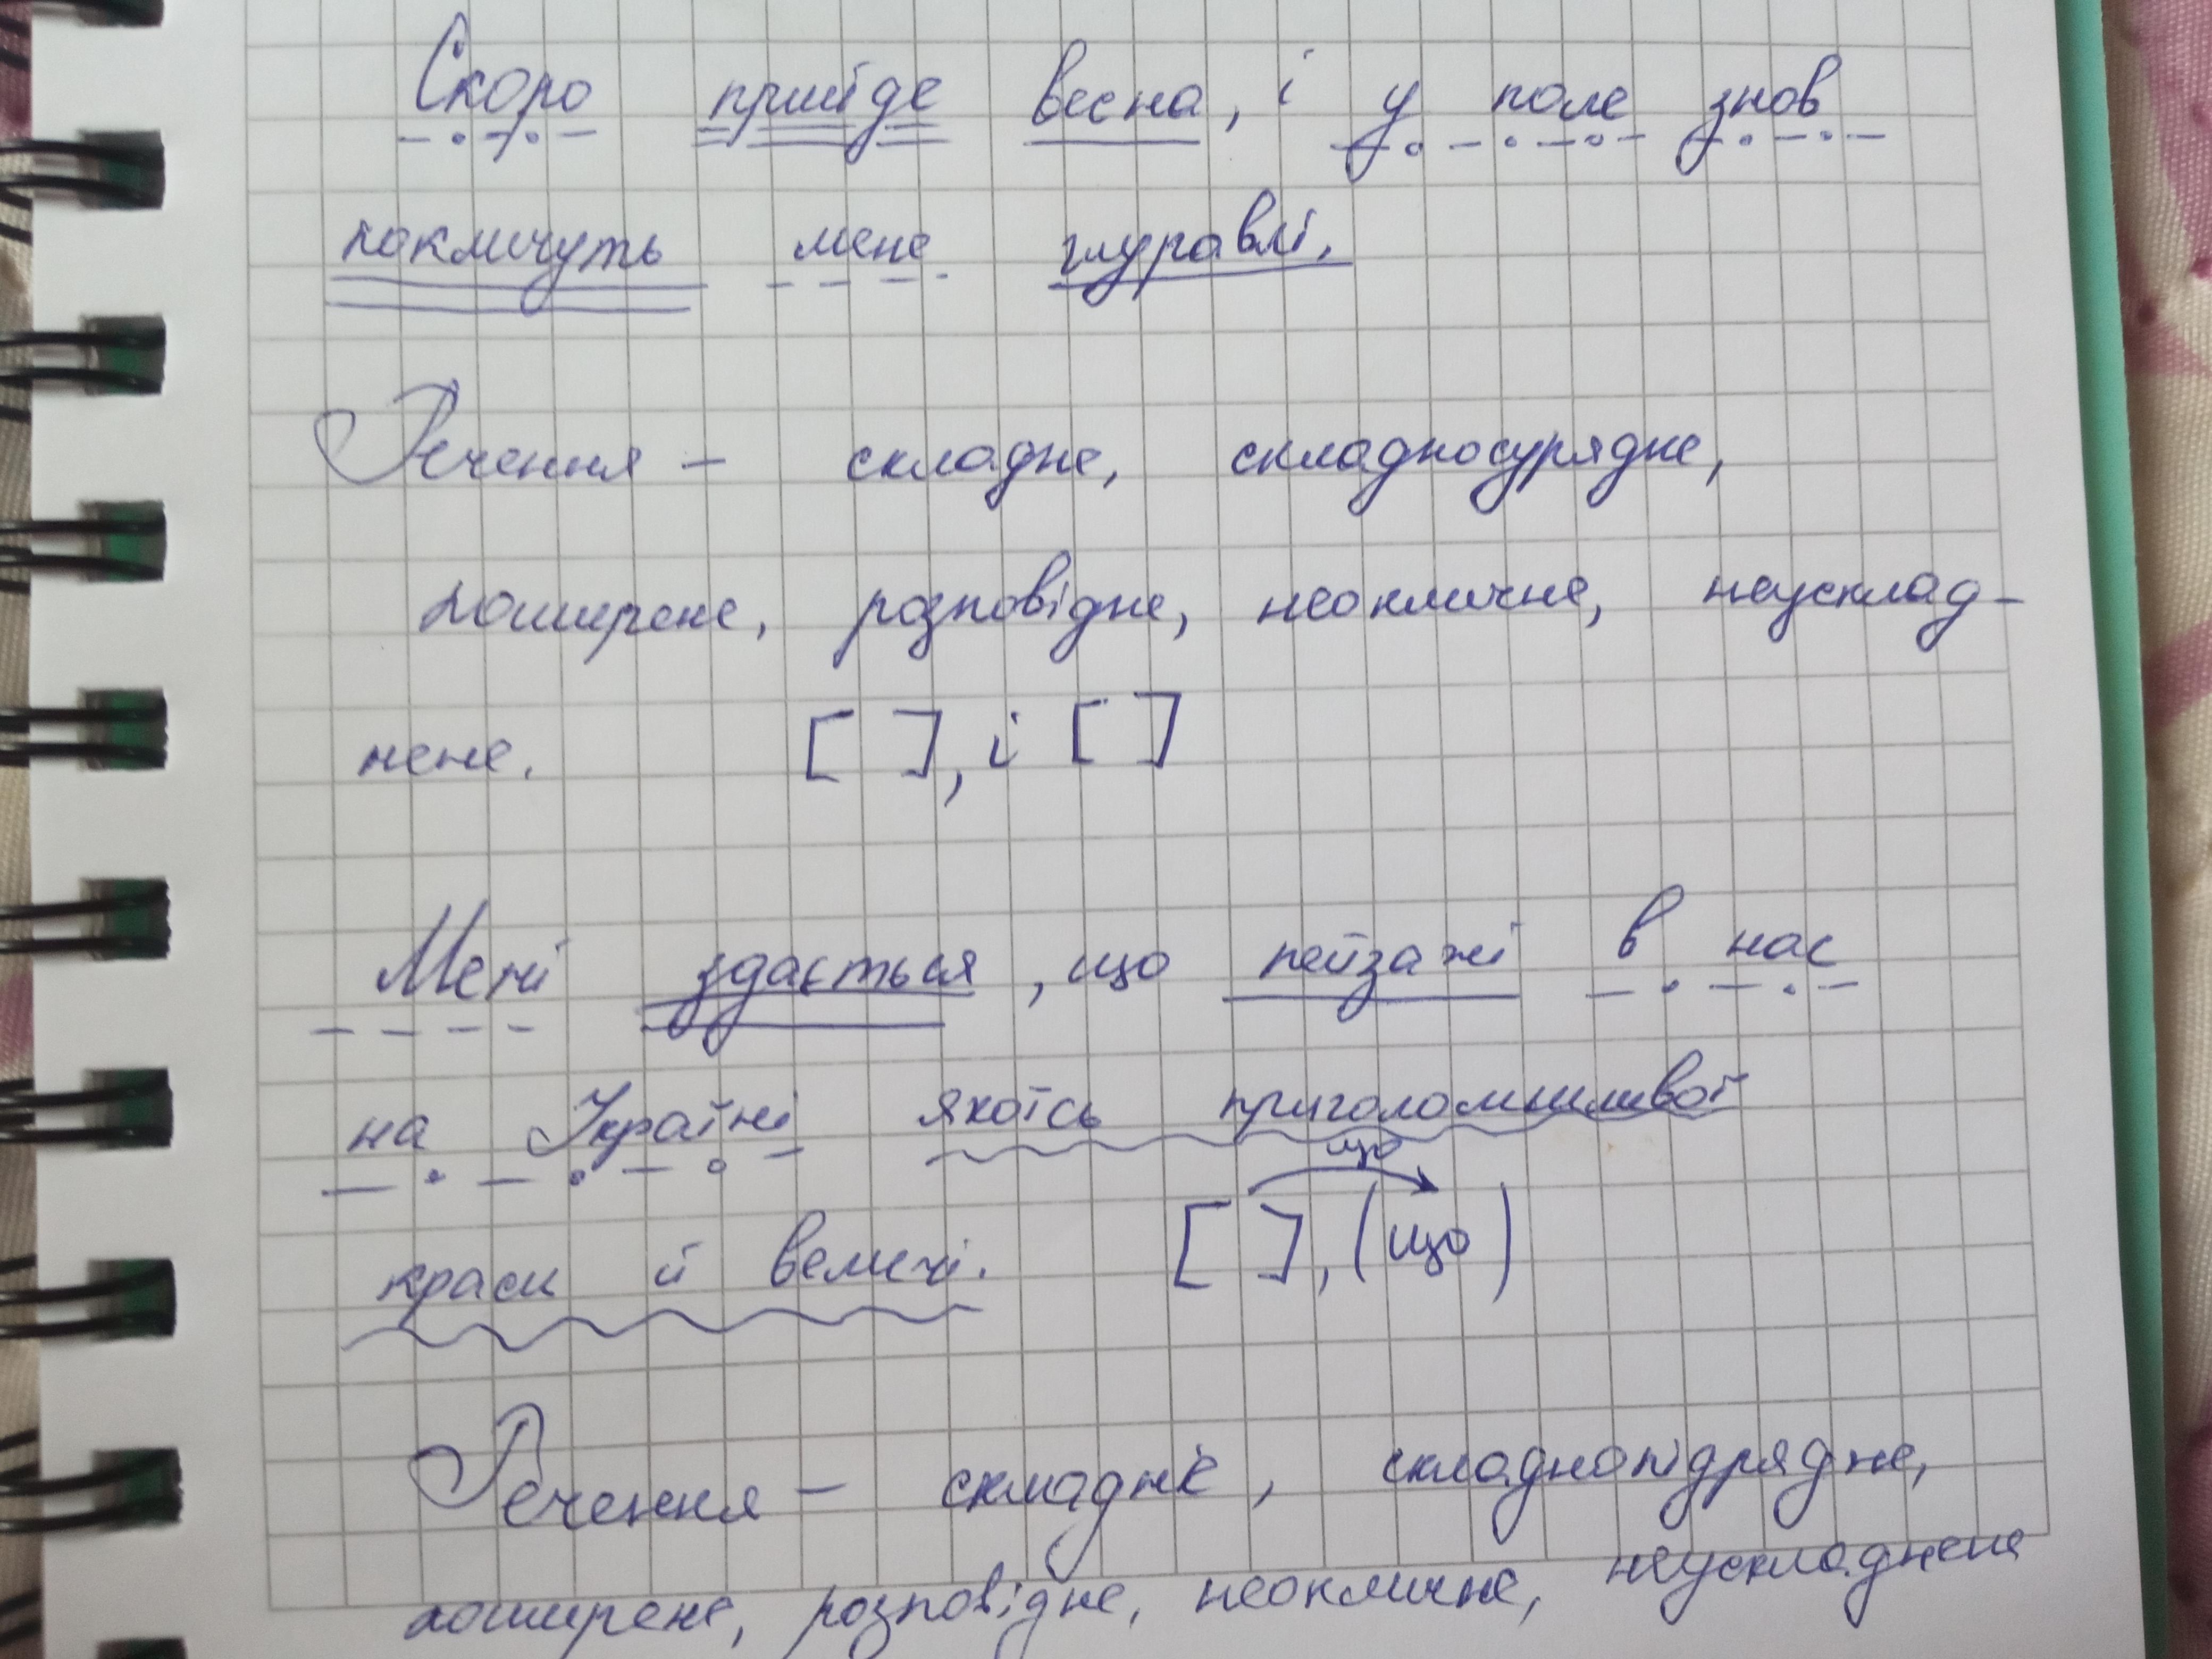 Скоро прийде весна, і у поле знов
покличуть мене журавлі.
Речення – складне, складносурядне,
поширене, розповідне, неокличне, неусклад-
нене. [ ], і [ ]
Мені здається, що пейзажі в нас
на Україні якоїсь приголомшливої
що
краси й величі. [ ], (що)
Речення – складне, складнопідрядне,
поширене, розповідне, неокличне, неускладнене